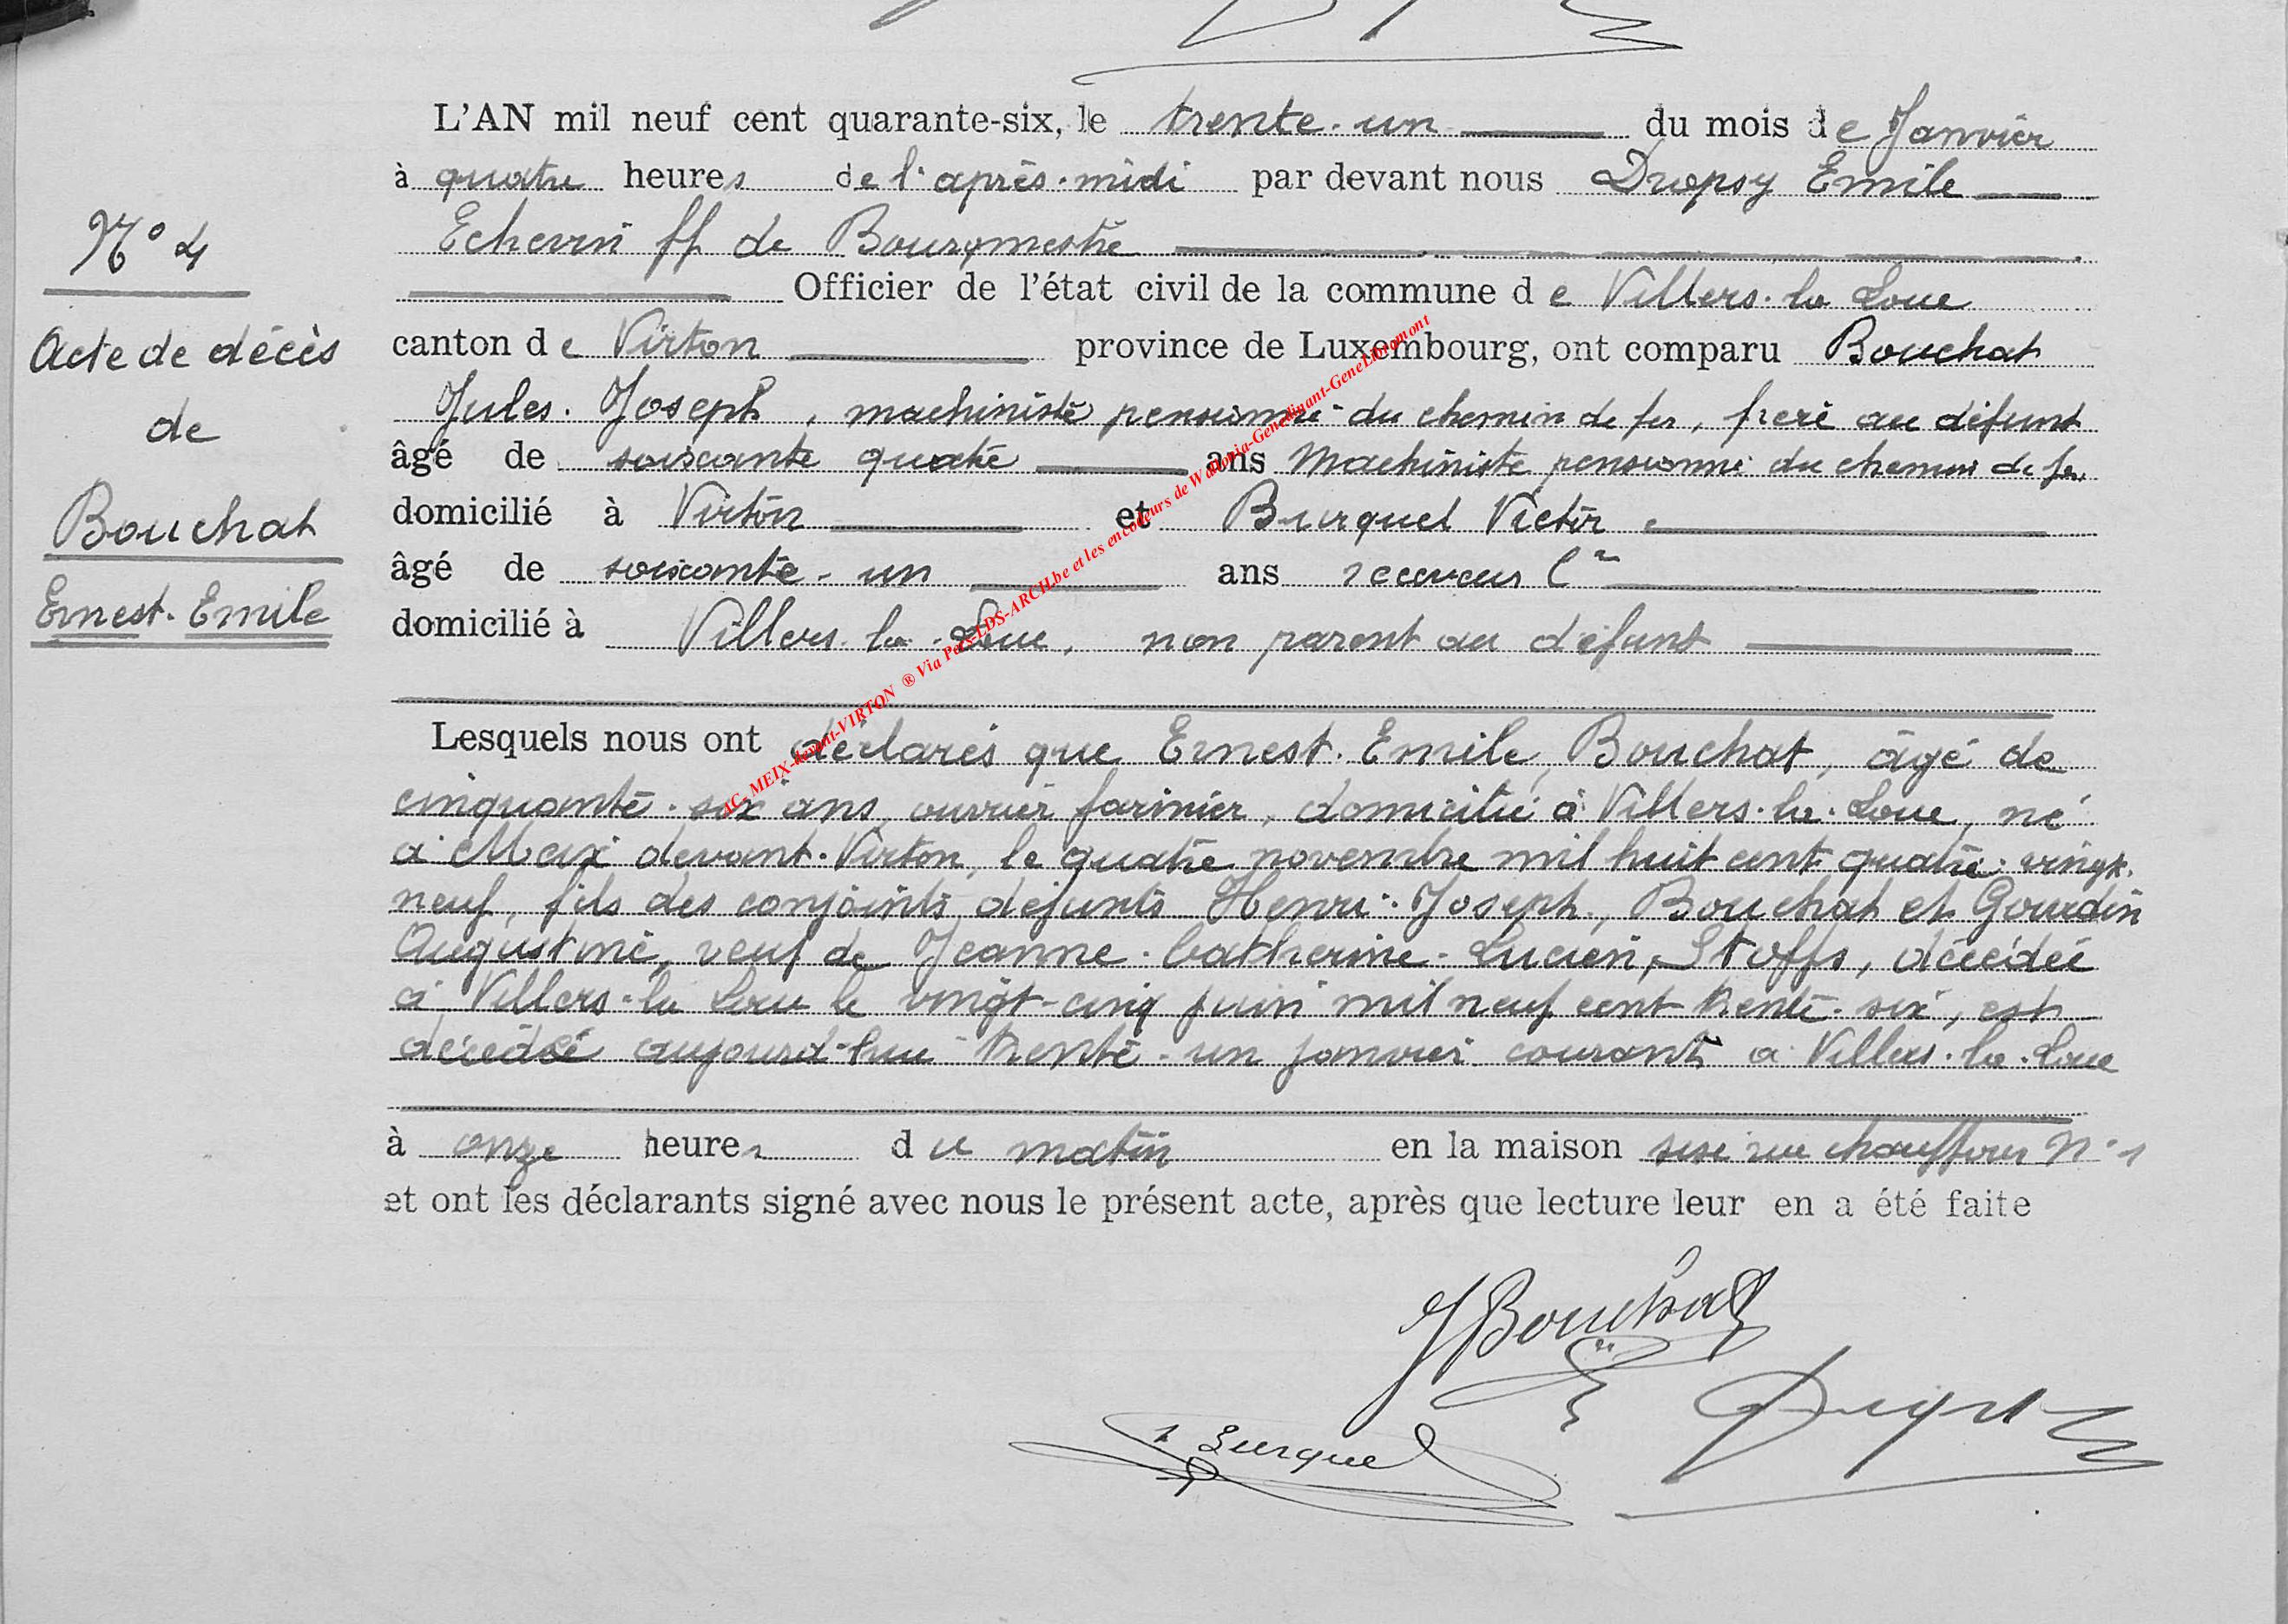 L'AN mil neuf cent quarante-six, le trente-un du mois de Janvier
à quatre heures de l'après-midi par devant nous Dropsy Emile
Echevin ff de Bourgmestre
Officier de l'état civil de la commune de Villers-la Loue
canton de Virton province de Luxembourg, ont comparu Bouchat
Jules-Joseph, machiniste pensionné du chemin de fer, frère au défunt
âgé de soixante quatre ans Machiniste pensionné du chemin de fer
domicilié à Virton et Burquel Victor
âgé de soixante-un ans receveur
domicilié à Villers-la-Loue, non parent au défunt
Lesquels nous ont déclarés que Ernest-Emile, Bouchat, âgé de
cinquante-six ans, ouvrier farinier, domicilié à Villers-la-Loue, né
à Meix devant-Virton, le quatre novembre mil huit cent quatre-vingt-
neuf, fils des conjoints défunts Henri-Joseph, Bouchat et Gourdin
Augustine, veuf de Jeanne-Catherine-Lucien, Stoffs, décédée
à Villers-la Loue le vingt-cinq juin mil neuf cent trente-six, est
décédé aujourd'hui trente-un janvier courant à Villers-la-Loue
à onze heures du matin en la maison sise rue chauffour N°1
et ont les déclarants signé avec nous le présent acte, après que lecture leur en a été faite
N° 4
Acte de décès
de
Bouchat
Ernest-Emile
JBouchat
Burquel
AC- MEIX-devant-VIRTON ® Via Pers-LDS-ARCH.be et les encodeurs de Wallonia-Genedinant-GeneLibramont